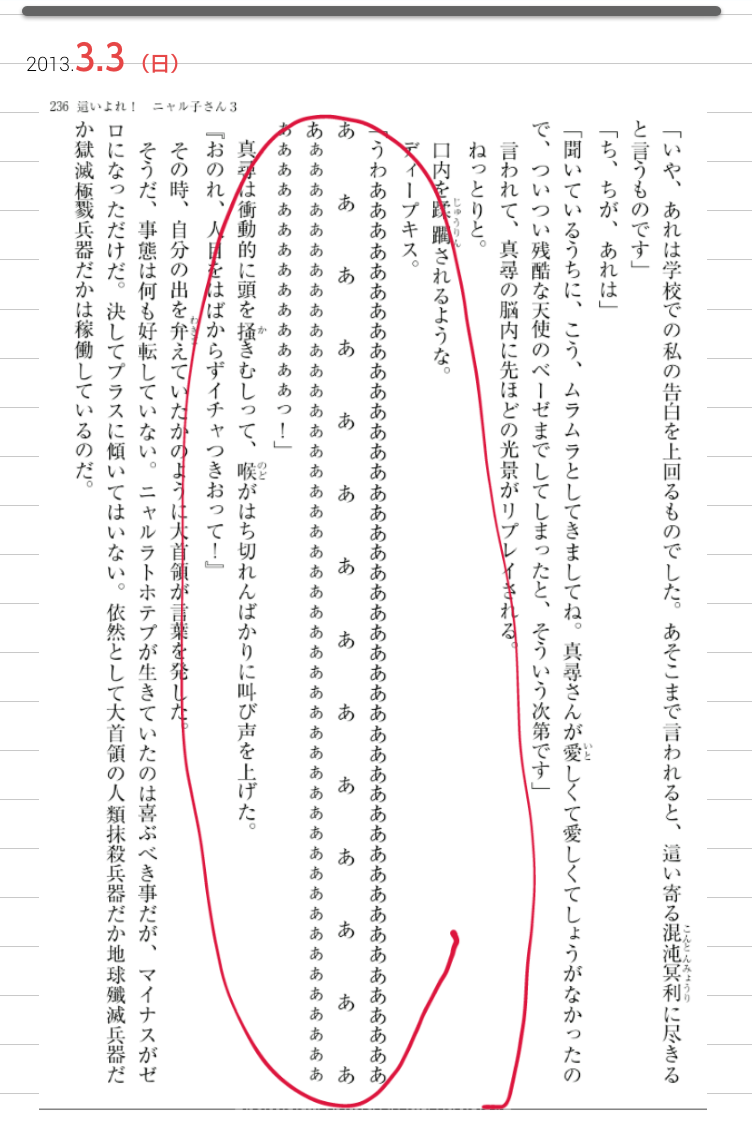 2013.3.3（日）
236 這いよれ！ ニャル子さん3
「いや、あれは学校での私の告白を上回るものでした。あそこまで言われると、這い寄る混沌冥利に尽きる
と言うものです」
「ち、ちが、あれは」
「聞いているうちに、こう、ムラムラとしてきましてね。真尋さんが愛しくて愛しくてしょうがなかったの
で、ついつい残酷な天使のベーゼまでしてしまったと、そういう次第です」
言われて、真尋の脳内に先ほどの光景がリプレイされる。
ねっとりと。
口内を蹂躙されるような。
ディープキス。
「うわあああああああああああああああああああああああああああああああああああああああああああああ
あ　あ　あ　あ　あ　あ　あ　あ　あ　あ　あ　あ　あ　あ
あぁぁぁぁぁぁぁぁぁぁぁぁぁぁぁぁぁぁぁぁぁぁぁぁぁぁぁぁぁぁぁぁぁぁぁぁぁぁぁぁぁぁぁぁぁぁぁ
ぁぁぁぁぁぁぁぁぁぁぁぁぁぁっ！」
真尋は衝動的に頭を掻きむしって、喉がはち切れんばかりに叫び声を上げた。
『おのれ、人目をはばからずイチャつきおって！』
その時、自分の出を弁えていたかのように大首領が言葉を発した。
そうだ、事態は何も好転していない。ニャルラトホテプが生きていたのは喜ぶべき事だが、マイナスがゼ
ロになっただけだ。決してプラスに傾いてはいない。依然として大首領の人類抹殺兵器だか地球殲滅兵器だ
か獄滅極戮兵器だかは稼働しているのだ。